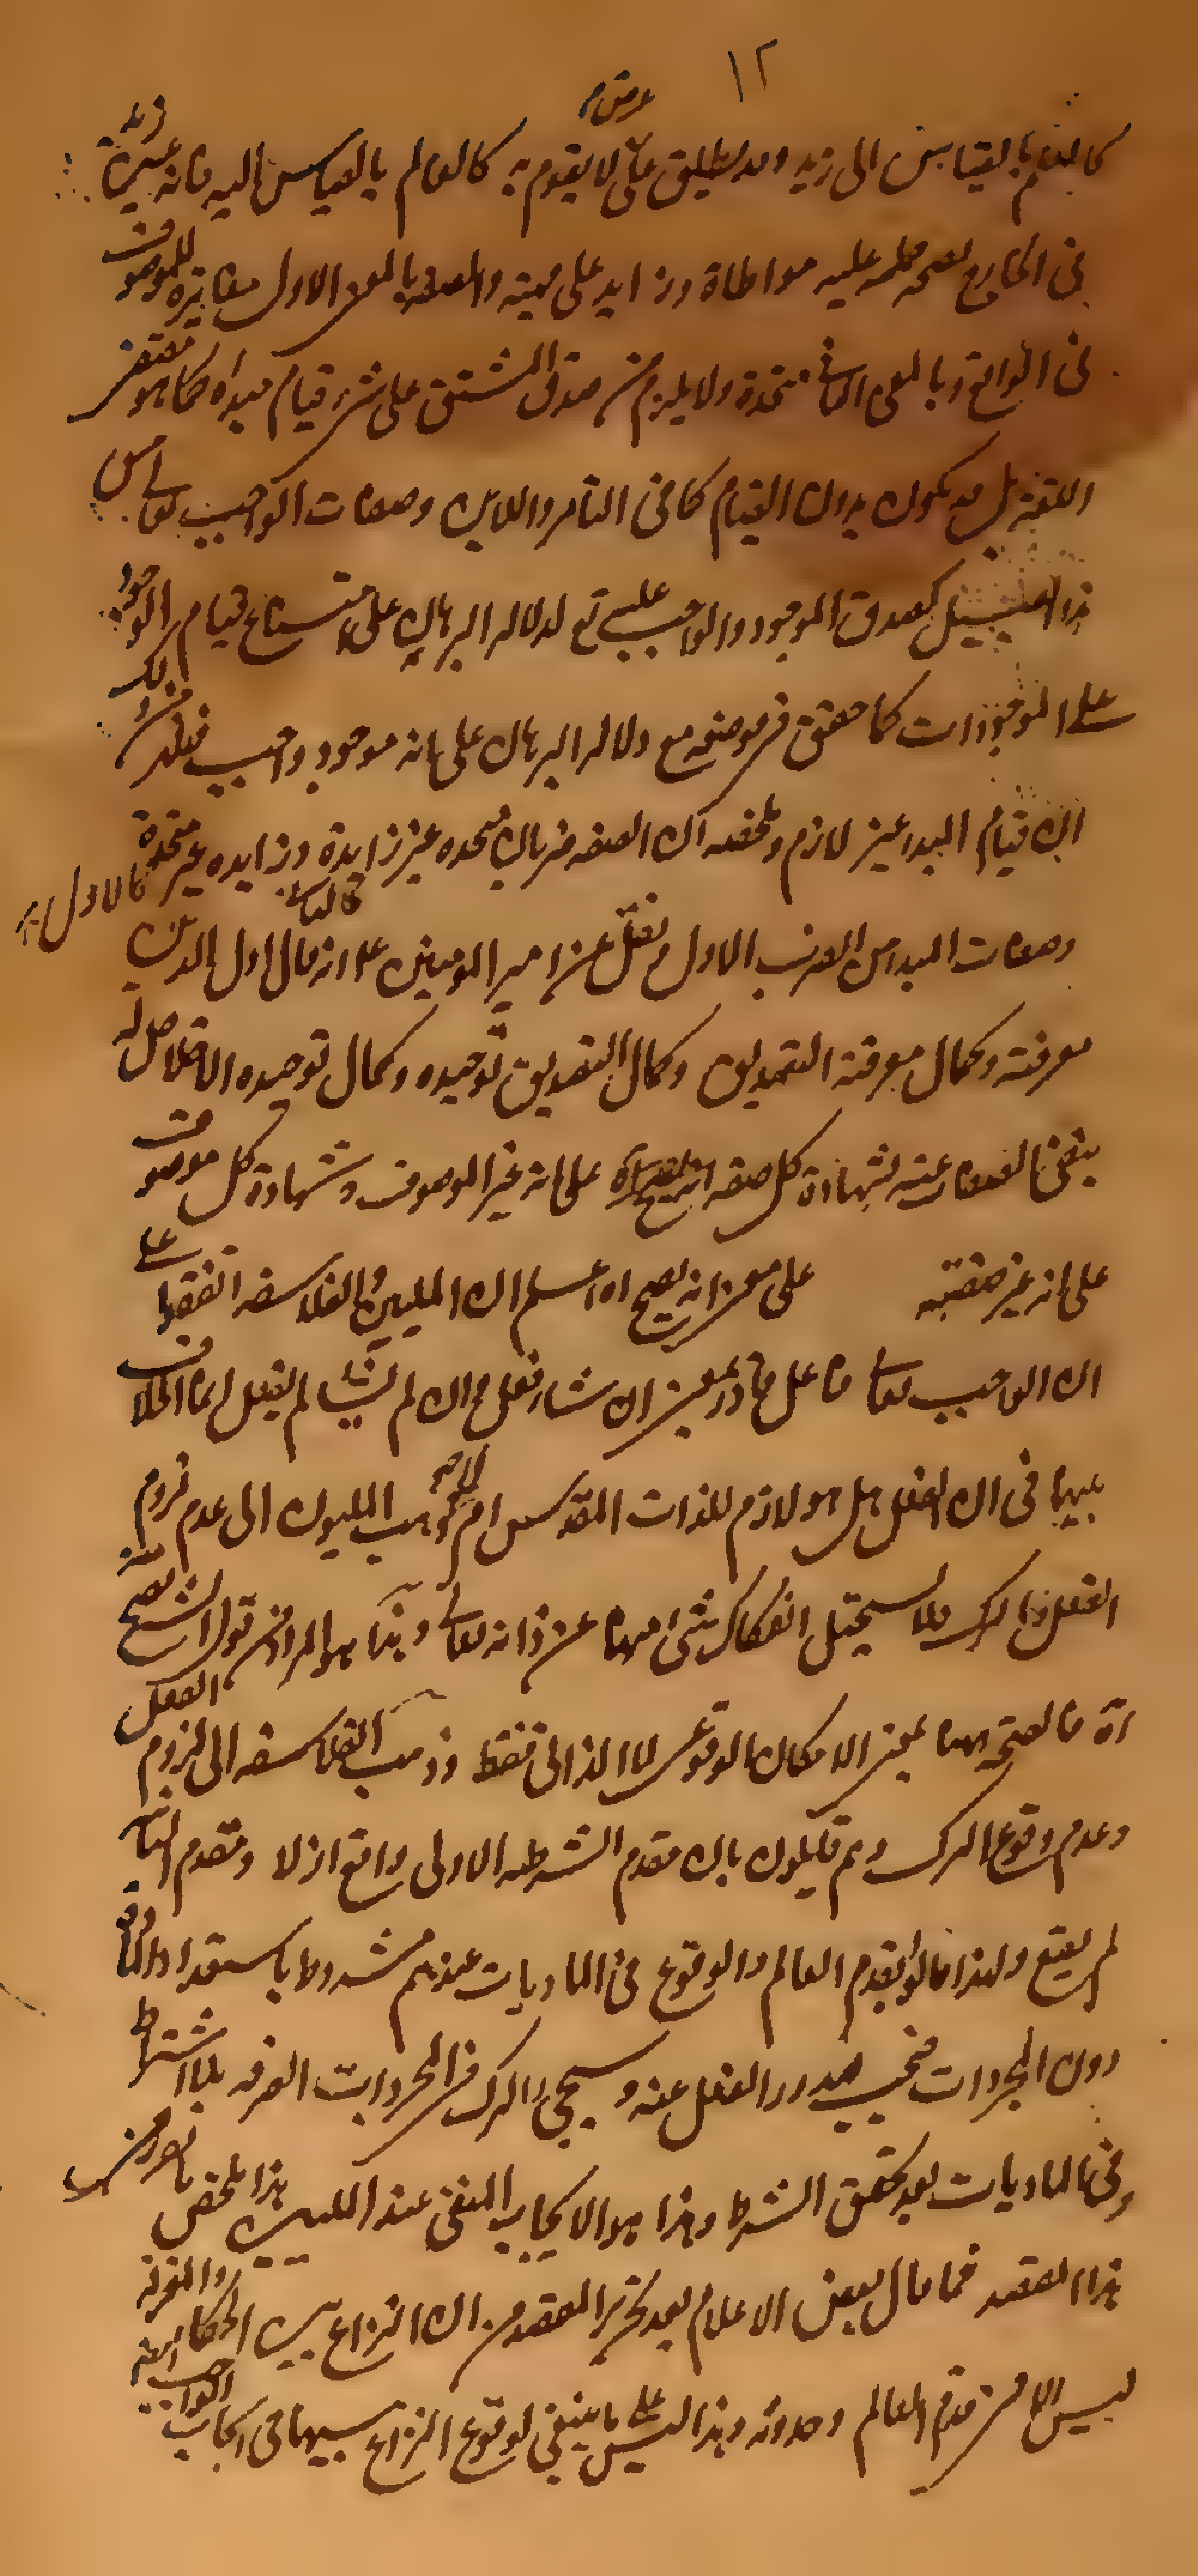 ١٢
كالعلم بالقياس الى زيد وقد يطلق على ما لا يقوم به كالعالم بالقياس اليه فانه غيره
عرض
فى الخارج لصحة حمله عليه مواطاة وزايد على مهيته والصفة بالمعنى الاول مغايرة للموصوف
فى الواقع وبالمعنى الثانى متحدة ولا يلزم من صدق المشتق على شىء قيام مبدأه كما هو مقتضى
اللغة بل قد يكون بدون القيام كما فى التامر واللابن وصفات الواجب تعالى من
هذا القبيل كصدق الموجود والواجب عليه تع لدلالة البرهان على امتناع قيام الوجود
على الموجودات كما حقق فى موضعه مع دلالة البرهان على انه موجود واجب فعلم من ذلك
ان قيام المبدا غير لازم وملخصه ان الصفة ضربان متحده غير زايدة وزايده غير متحدة
فالاول
وصفات المبدا من الضرب الاول ونقل عن امير المومنين ع انه قال اول الدين
معرفته وكمال معرفته التصديق وكمال التصديق توحيده وكمال توحيده الاخلاص له
بنفى الصفات عنه لشهادة كل صفة على انه غير الموصوف وشهادة كل موصوف
على انه غير صفته على معنى انه يصح اه اعلم ان المليين والفلاسفه اتفقوا على
ان الواجب تعالى فاعل قادر بمعنى ان شاء فعل وان لم يشا لم يفعل انما الخلاف
بينهما فى ان الفعل هل هو لازم للذات المقدس ام لا ذهب المليون الى عدم لزوم
الفعل والترك فلا يستحيل انفكاك شىء منهما عن ذاته تعالى وهذا هو المراد من قول الشيخ يصح منه الفعل
اه فالصحة ههنا بمعنى الامكان الوقوعى لا الذاتى فقط وذهب الفلاسفه الى لزوم
وعدم وقوع الترك وهم قايلون بان مقدم الشرطيه الاولى واقع ازلا ومقدم الثانيه
لم يقع ولهذا قالوا بقدم العالم والوقوع فى الماديات عندهم مشروط باستعداد المادة
دون المجردات فيجب صدور الفعل عنه ويستحيل الترك فى المجردات الصرفه بلا اشتراط
وفى الماديات بعد تحقق الشرط وهذا هو الايجاب المنفى عند المليين هذا ملخص
هذا المقصد فما قال بعض الاعلام بعد تحرير المقصد من ان النزاع بين الحكماء
ليس الا فى قدم العالم وحدوثه وهذا ليس على ما ينبغى لوقوع النزاع بينهما فى ايجاب الواجب